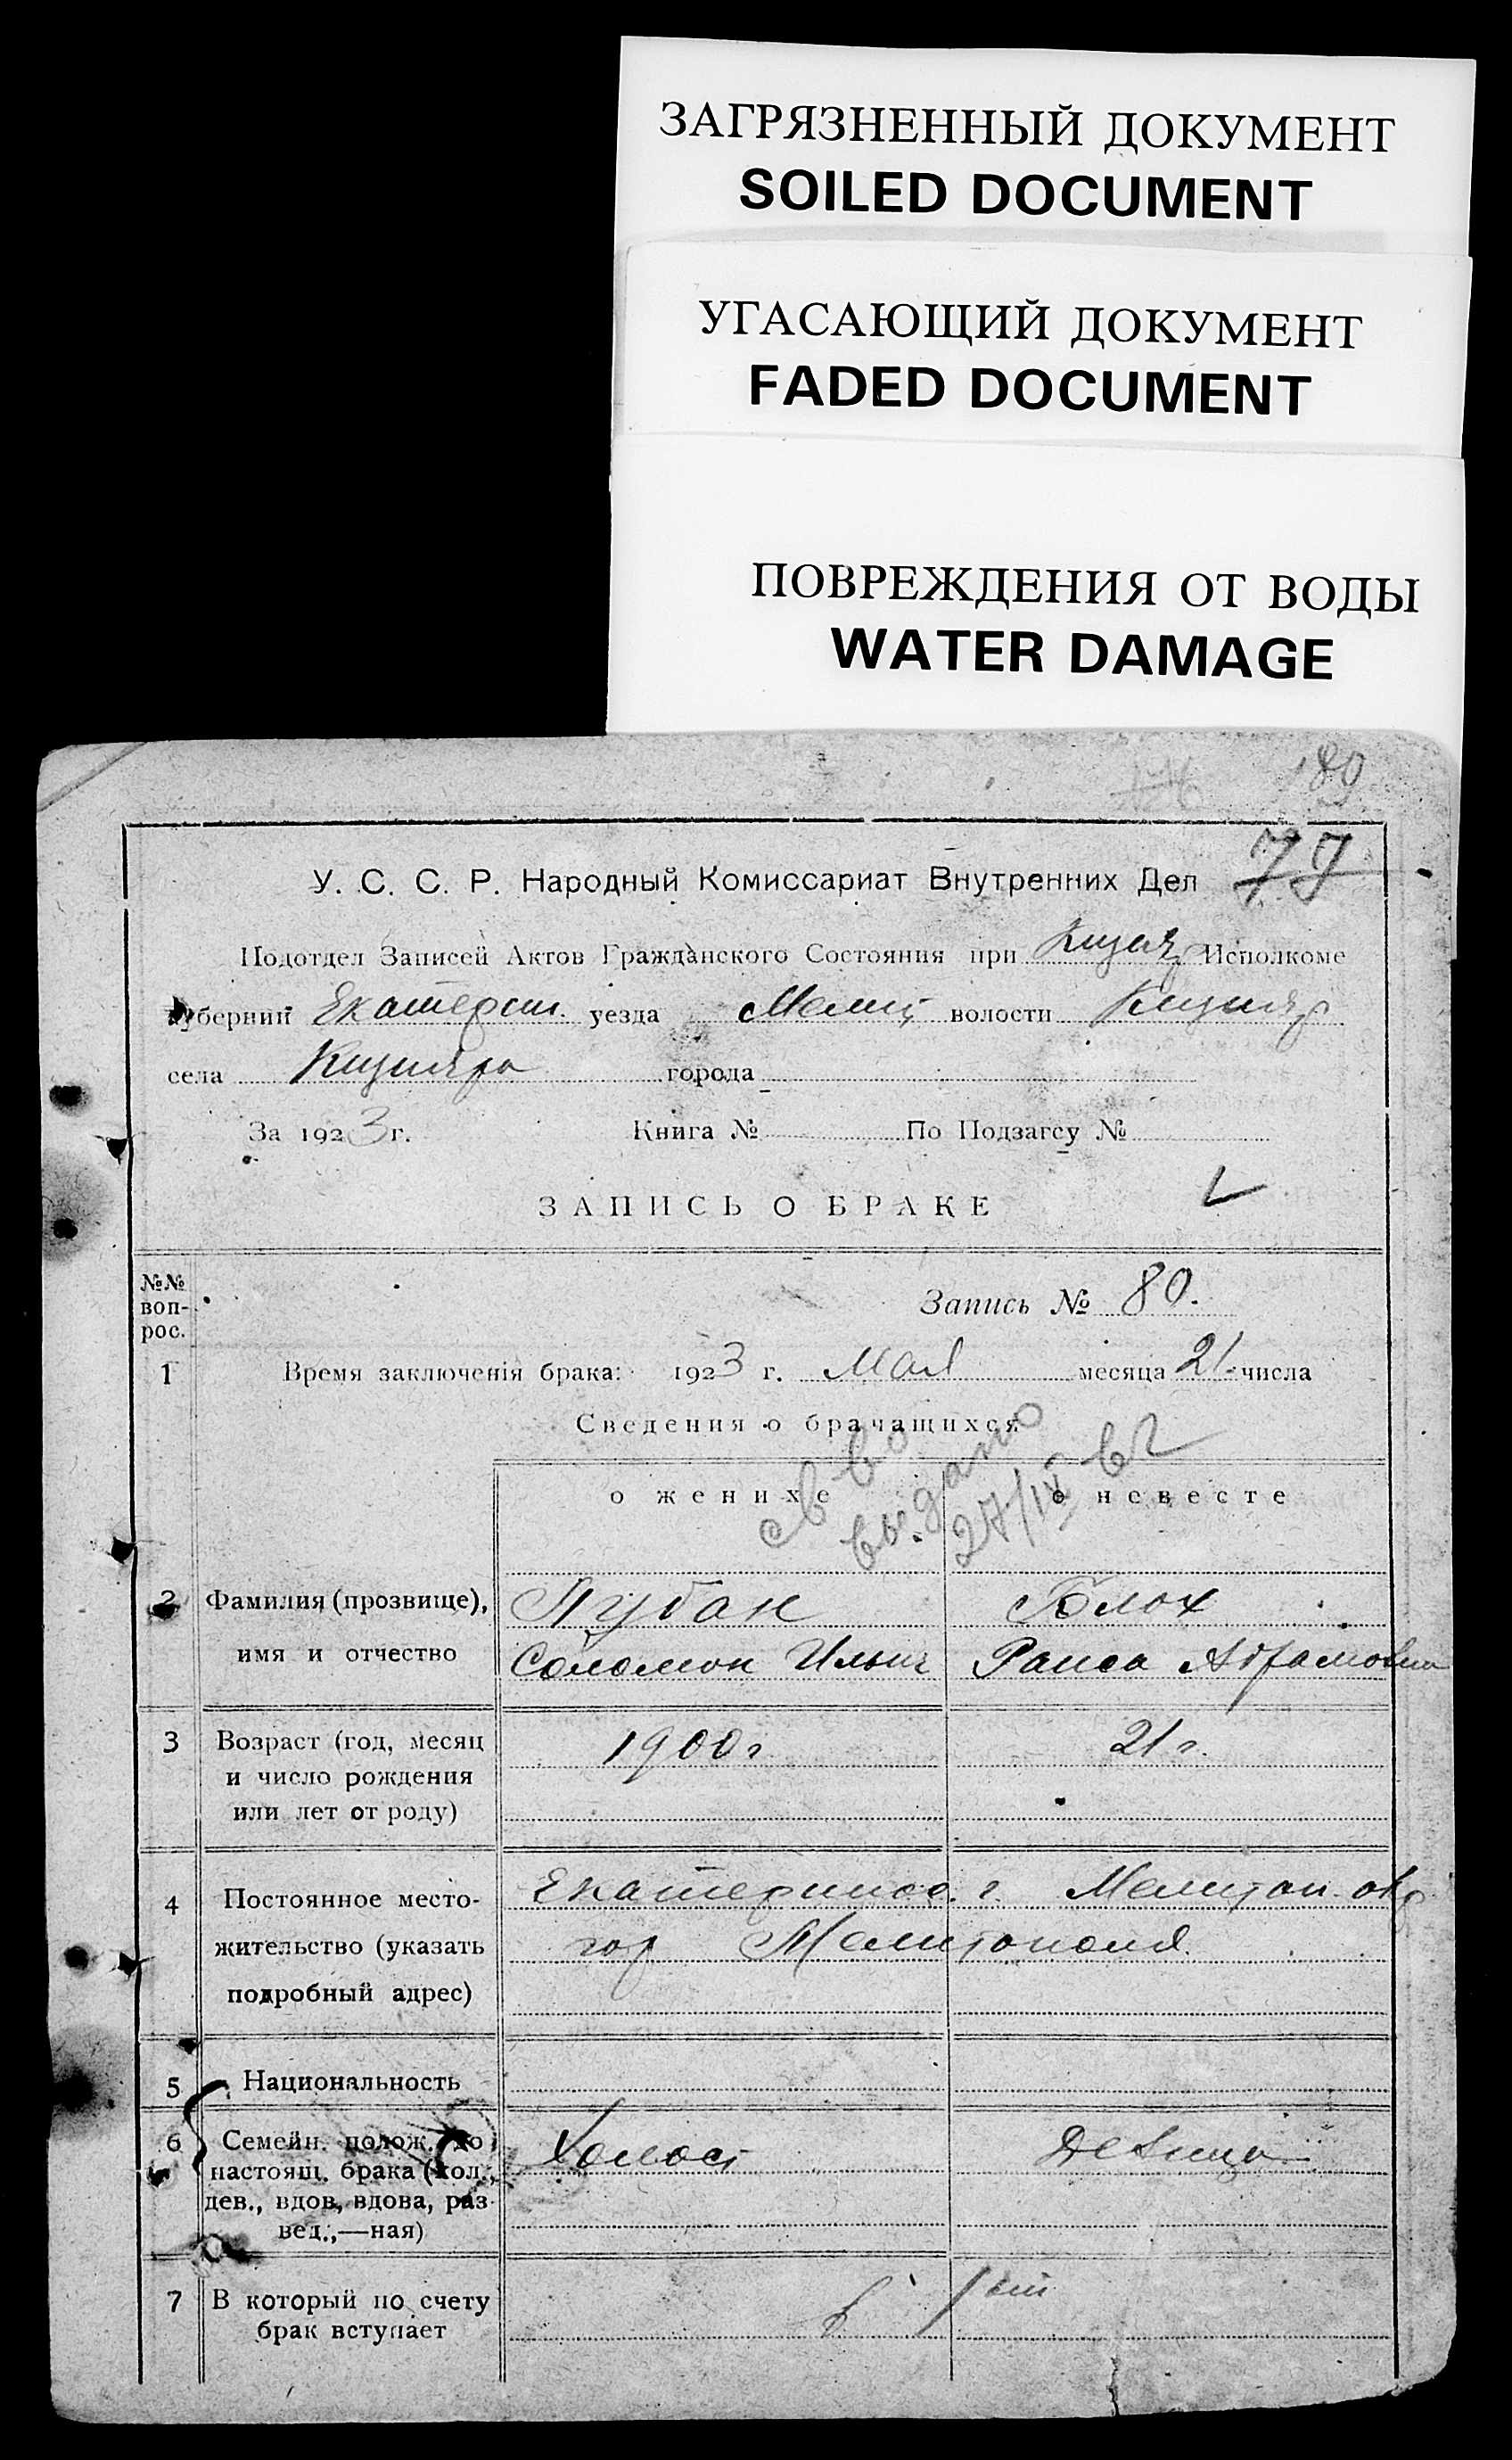 ЗАГРЯЗНЕННЫЙ ДОКУМЕНТ
SOILED DOCUMENT
УГАСАЮЩИЙ ДОКУМЕНТ
FADED DOCUMENT
ПОВРЕЖДЕНИЯ ОТ ВОДЫ
WATER DAMAGE
80
77
У. С. С. Р. Народный Комиссариат Внутренних Дел
Подотдел Записей Актов Гражданского Состояния при Кизияр Исполкоме
губернии Екатерин. уезда Мелит волости Кизияр
села Кизияра города
За 1923 г. Книга № По Подзагсу №
ЗАПИСЬ О БРАКЕ
№№ воп-рос.
Запись № 80.
1 Время заключенія брака: 1923 г. Мая месяца 21 числа
Сведения о брачащихся
св во
выдано
27/IV 62
о женихе о невесте
2 Фамилия (прозвище), Блох
имя и отчество Соломон Ильич Раиса Абрамовна
3 Возраст (год, месяц 1900г 21 г.
и число рождения
или лет от роду)
4 Постоянное место- Екатеринос. г. Мелитоп. окр
жительство (указать гор Мелитополя.
подробный адрес)
5 Национальность
6 Семейн. полож. до Холост Девица
настоящ. брака (хол.,
дев., вдов, вдова, раз-
вед.,—ная)
7 В который по счету в 1ый
брак вступает